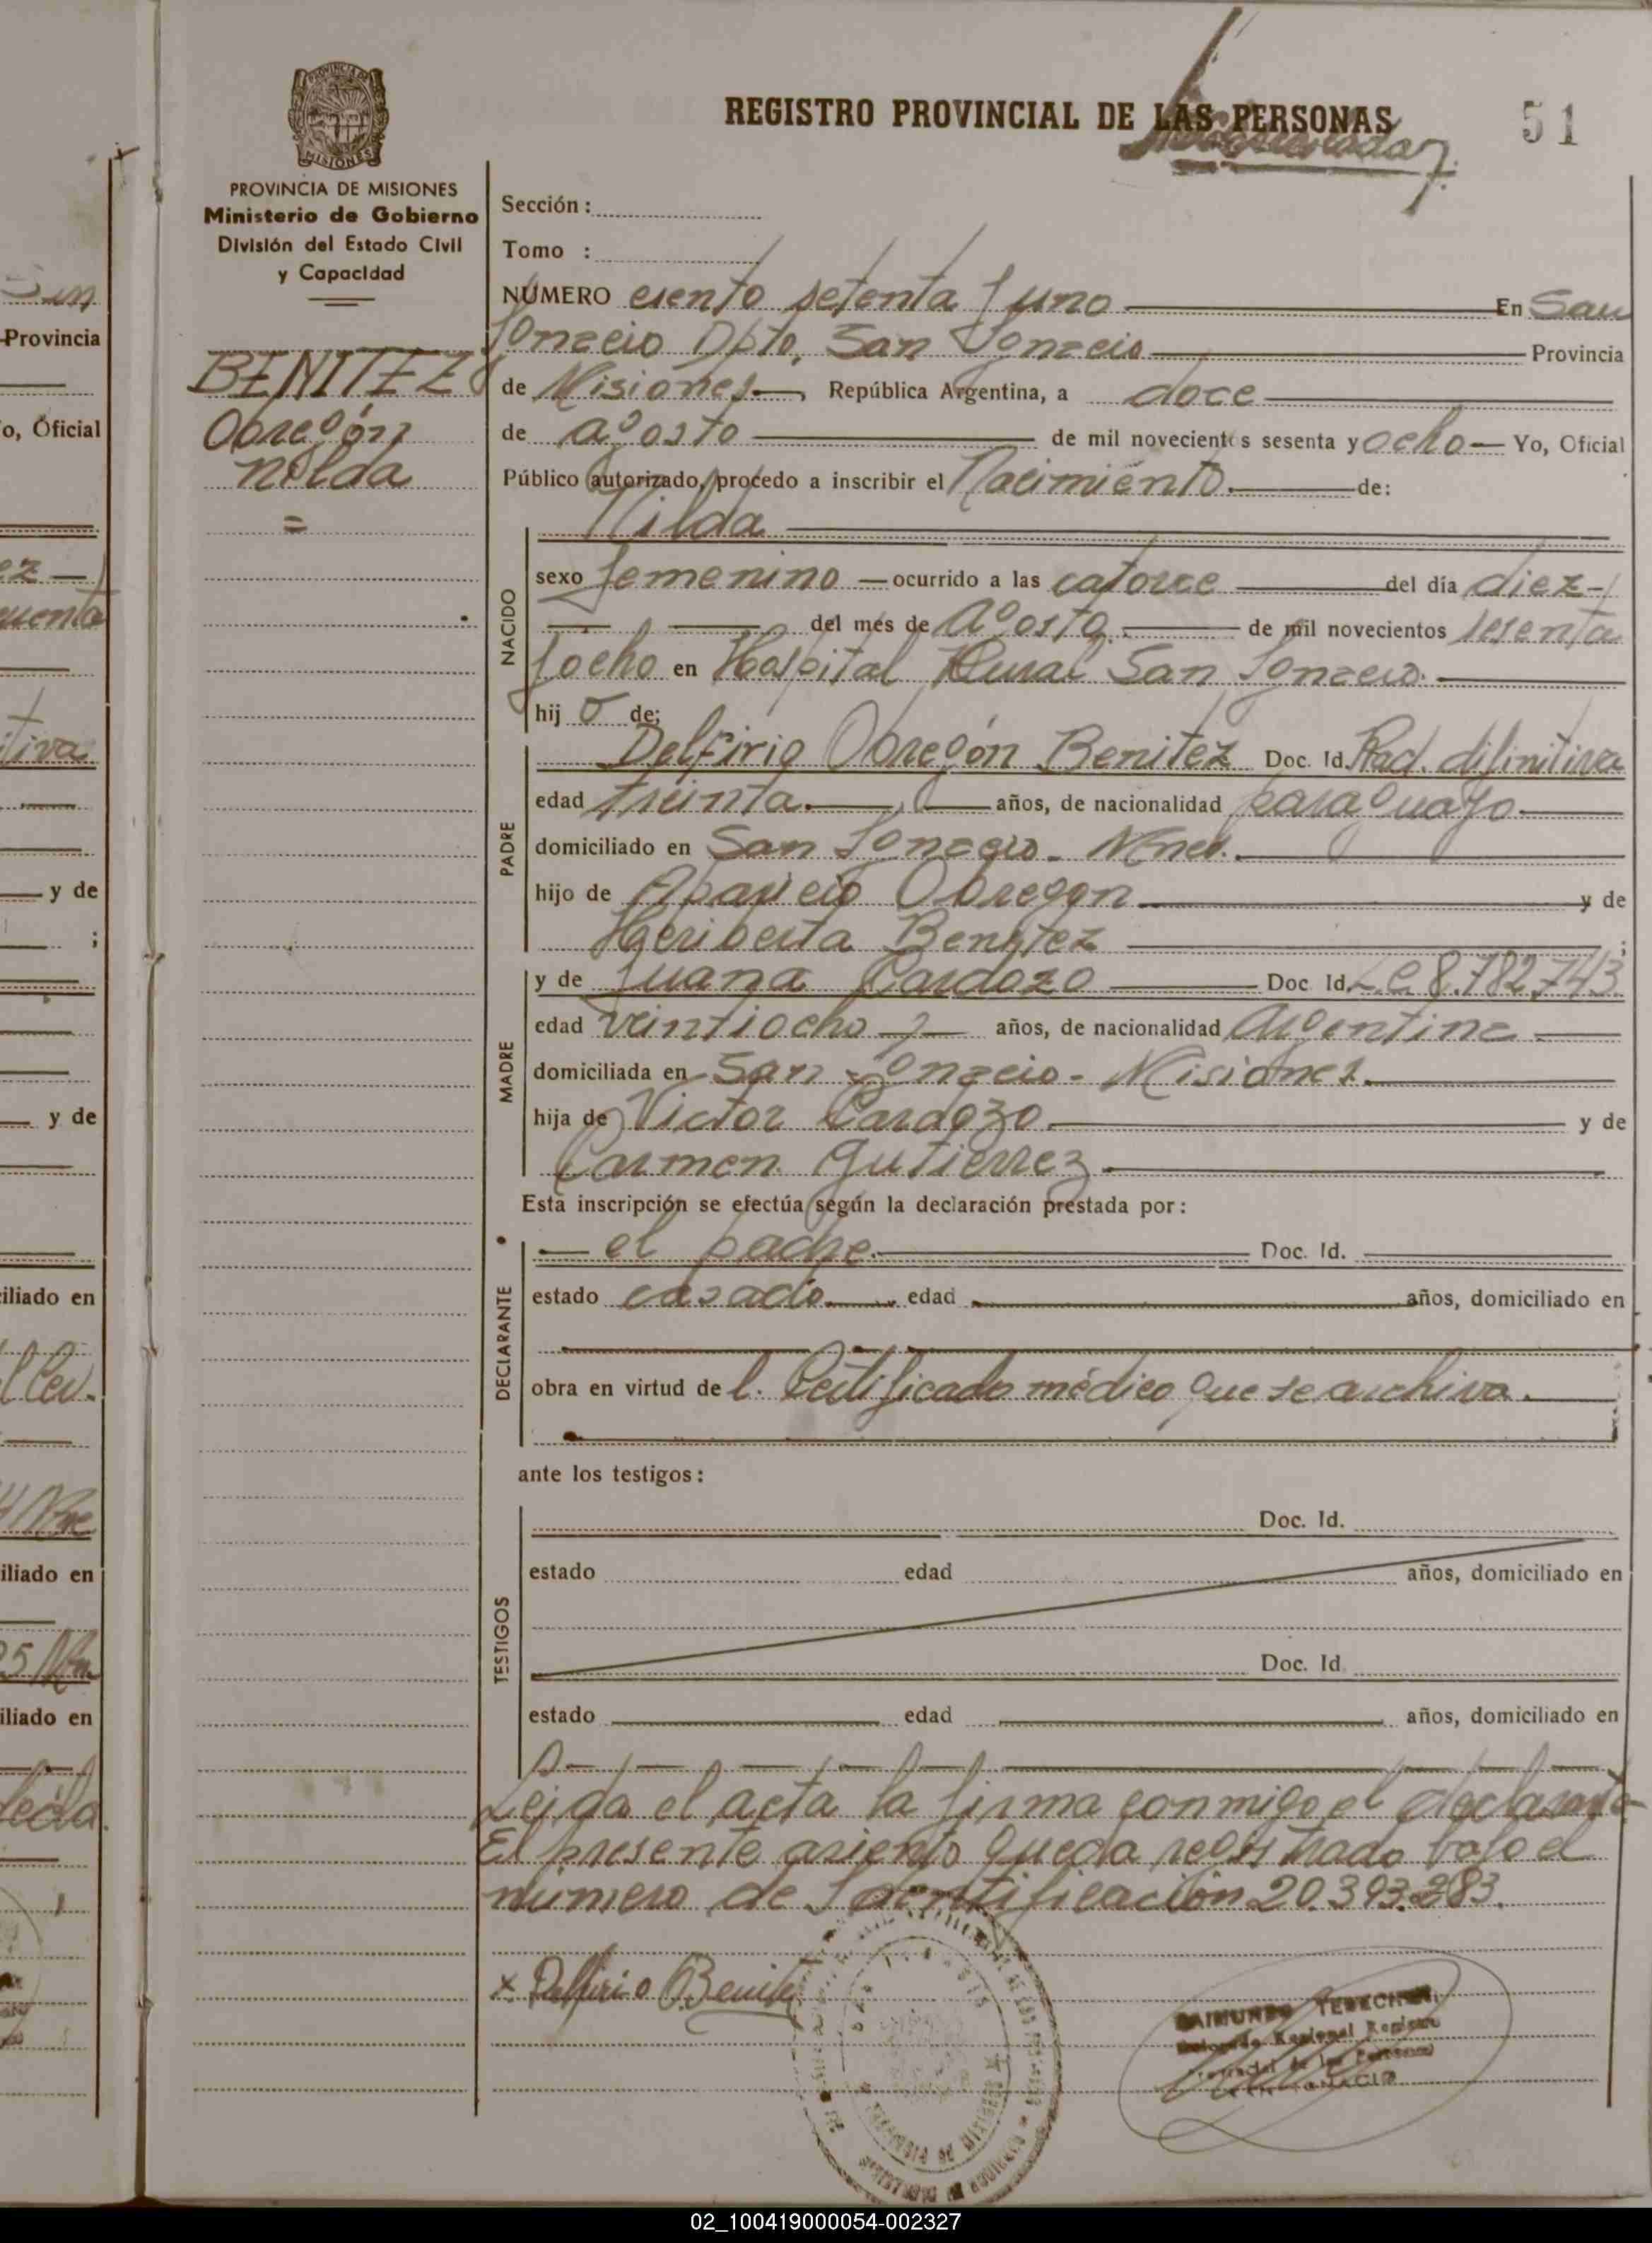 REGISTRO PROVINCIAL DE LAS PERSONAS
51
PROVINCIA DE MISIONES
PROVINCIA DE MISIONES
Ministerio de Gobierno
División del Estado Civil
y Capacidad
BENITEZ
Obregón
nilda
=
Sección :
Tomo :
NÚMERO ciento setenta y uno En San
Ignacio Dpto. San Ignacio Provincia
de Misiones República Argentina, a doce
de agosto de mil novecientos sesenta y ocho Yo, Oficial
Público autorizado, procedo a inscribir el Nacimiento de:
Nilda
NACIDO
sexo femenino ocurrido a las catorce del día diez
del mes de agosto de mil novecientos sesenta
y ocho en Hospital Rural San Ignacio.
hij o de:
PADRE
Delfirio Obregón Benitez Doc. Id. Rad. difinitiva
edad treinta años, de nacionalidad paraguayo
domiciliado en San Ignacio - Mnes.
hijo de Aparicio Obregon y de
Heriberta Benitez ;
MADRE
y de Juana Cardozo Doc Id. L.C. 8.782.743
edad veintiocho años, de nacionalidad Argentina
domiciliada en San Ignacio - Misiones.
hija de Victor Cardozo y de
Carmen Gutierrez
Esta inscripción se efectúa según la declaración prestada por :
DECLARANTE
el padre Doc. Id.
estado casado edad años, domiciliado en
obra en virtud de l. Certificado médico que se archiva.
ante los testigos :
TESTIGOS
Doc. Id.
estado edad años, domiciliado en
Doc. Id
estado edad años, domiciliado en
Leida el acta la firma conmigo el declarante
El presente asiento queda registrado bajo el
número de Identificación 20.393.283.
x Delfirio O Benitez
Provincia
o, Oficial
y de
;
y de
iliado en
iliado en
iliado en
02_100419000054-002327